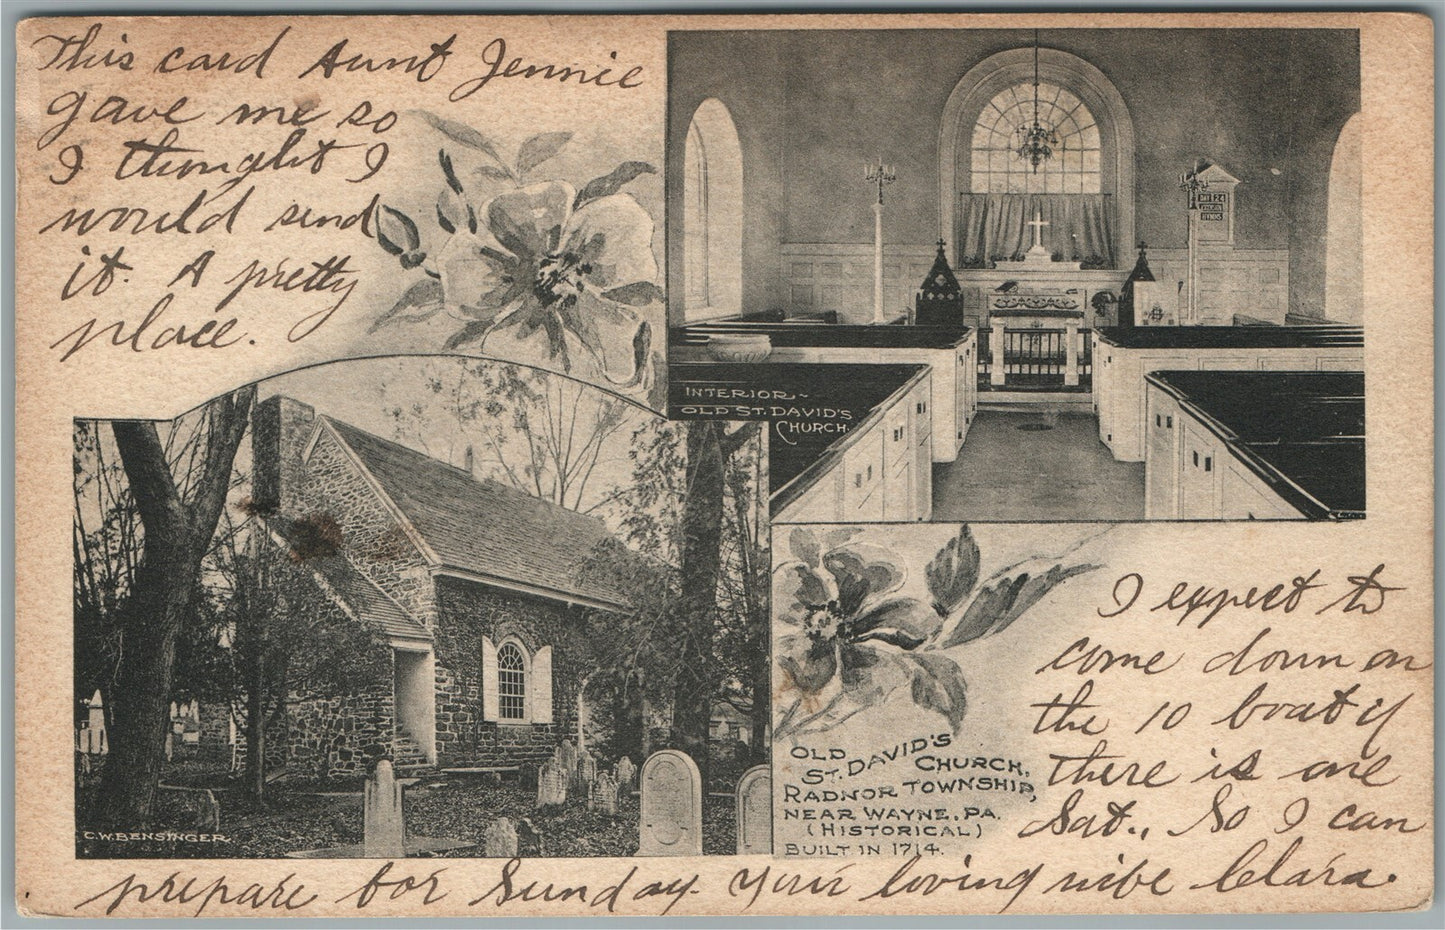 This card Aunt Jennie
gave me so
I thought I
would send
it. A pretty
place.
INTERIOR~
OLD ST. DAVID'S
CHURCH.
C.W.BENSINGER.
OLD
ST. DAVID'S
CHURCH,
RADNOR TOWNSHIP,
NEAR WAYNE, PA.
(HISTORICAL)
BUILT IN 1714.
I expect to
come down on
the 10 boat if
there is one
Sat., So I can
prepare for Sunday. Your loving wife Clara.